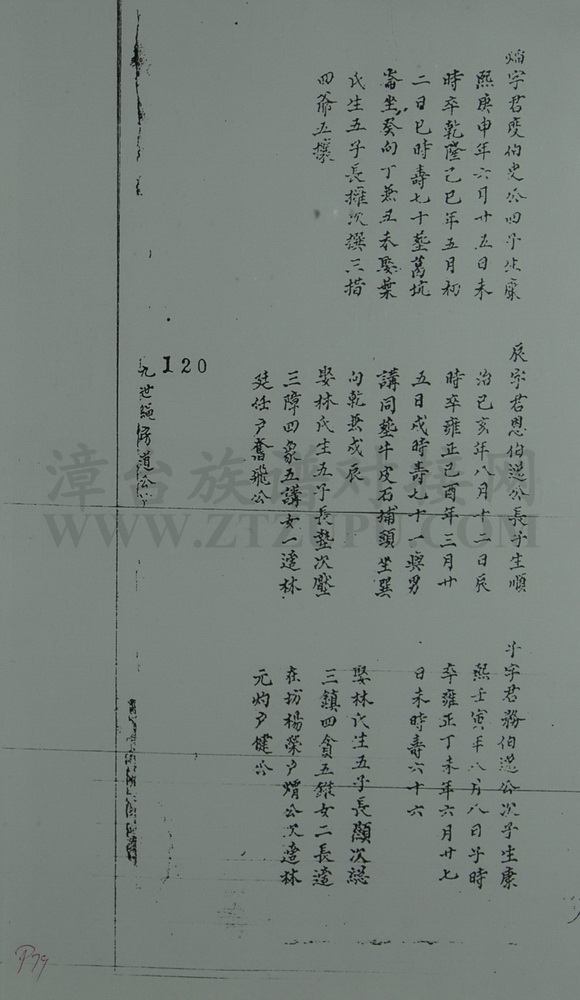 字君度伯史公四子生康
熙庚申年六月廿五日未
時卒乾隆己巳年五月初
二日巳時壽七十葬萬坑
崙坐癸向丁兼丑未娶葉
氏生五子長擁次撰三措
四爺五攘
辰字君恩伯選公長子生順
治己亥年八月十二日辰
時卒雍正己酉年三月廿
五日戌時壽七十一與男
講同葬牛皮石埔頭坐巽
向乾兼戌辰
娶林氏生五子長墊次壓
三障四象五講女一適林
廷任戶奮飛公
斗字君務伯選公次子生康
熙壬寅年八月八日子時
卒雍正丁未年六月廿七
日未時壽六十六
娶林氏生五子長顯次
三鎮四貪五錐女二長適
在坊楊榮戶公次適林
元灼戶健公
120
九世 房道公
漳台族谱对接网
WWW.ZTZUPU.COM
P79